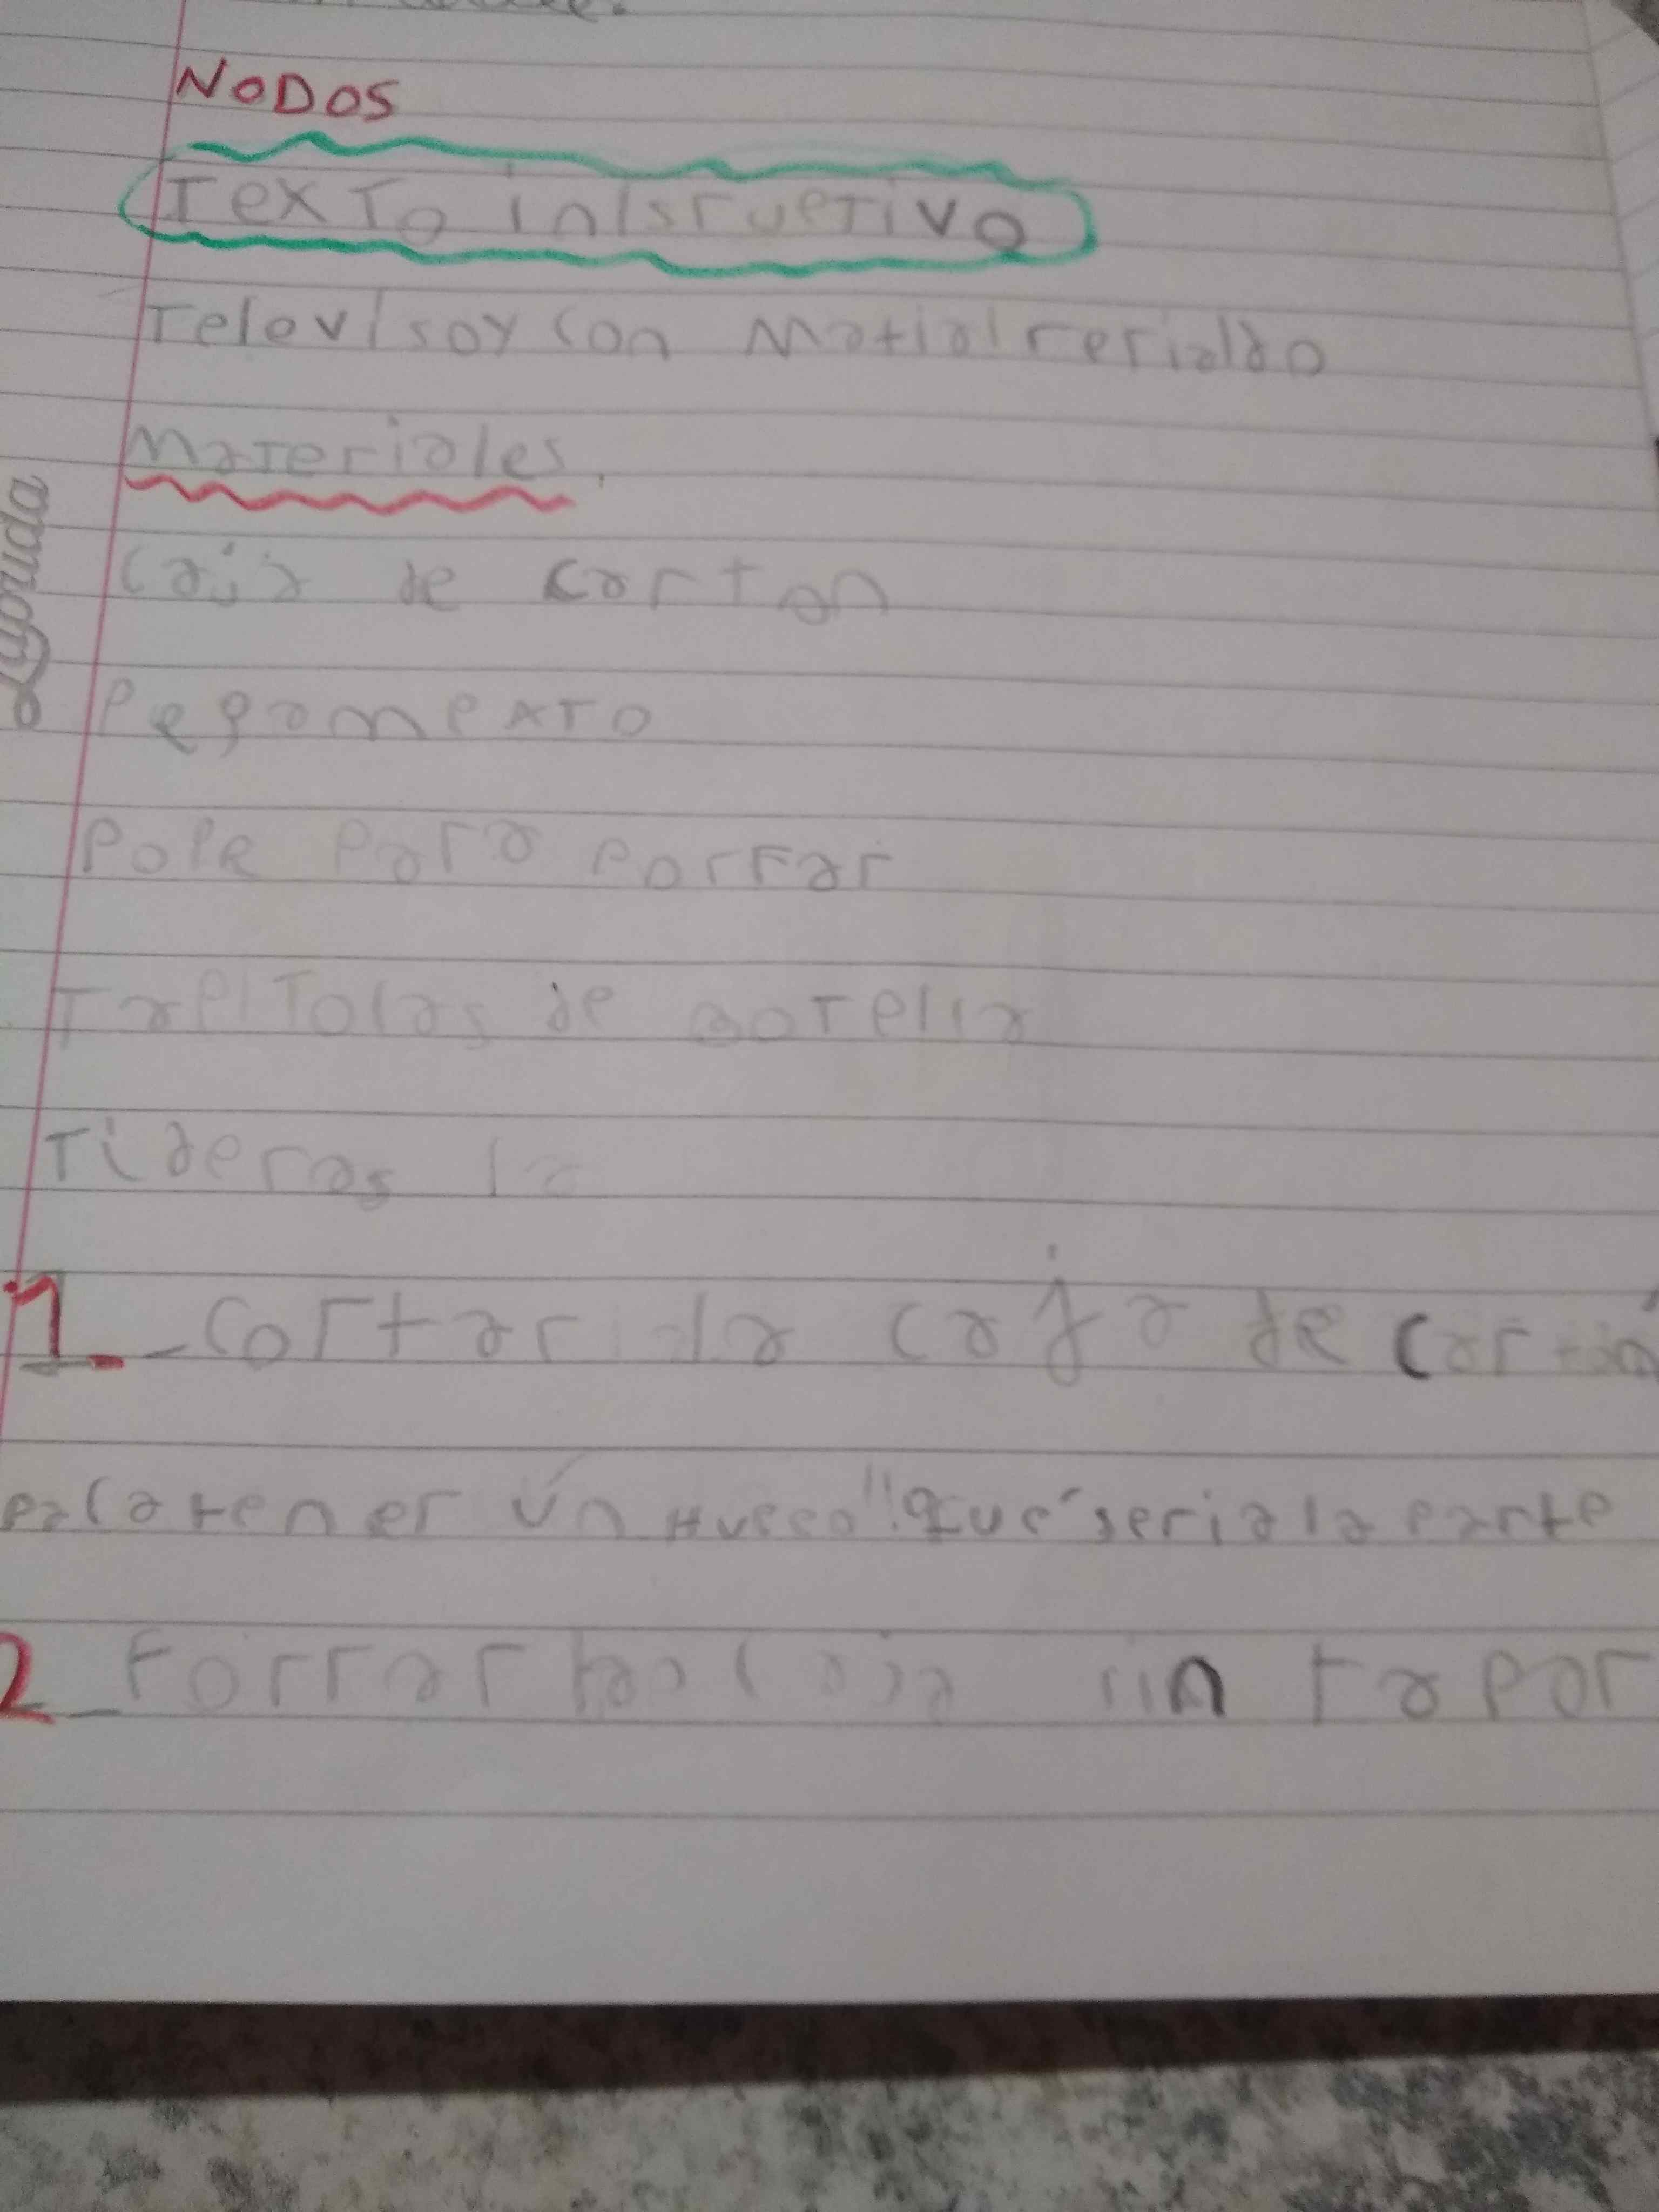 NODOS
Texto inlsructivo
Televisoy con Matialrerialdo
Materiales.
Caja de corton
Pegomexto
Pope para Forrar
Tapitolas de botella
Tideras
1 - Cortar la caja de carton
palatener un Hueco "que seria la parte
2 - Forrar la caja sin tapar